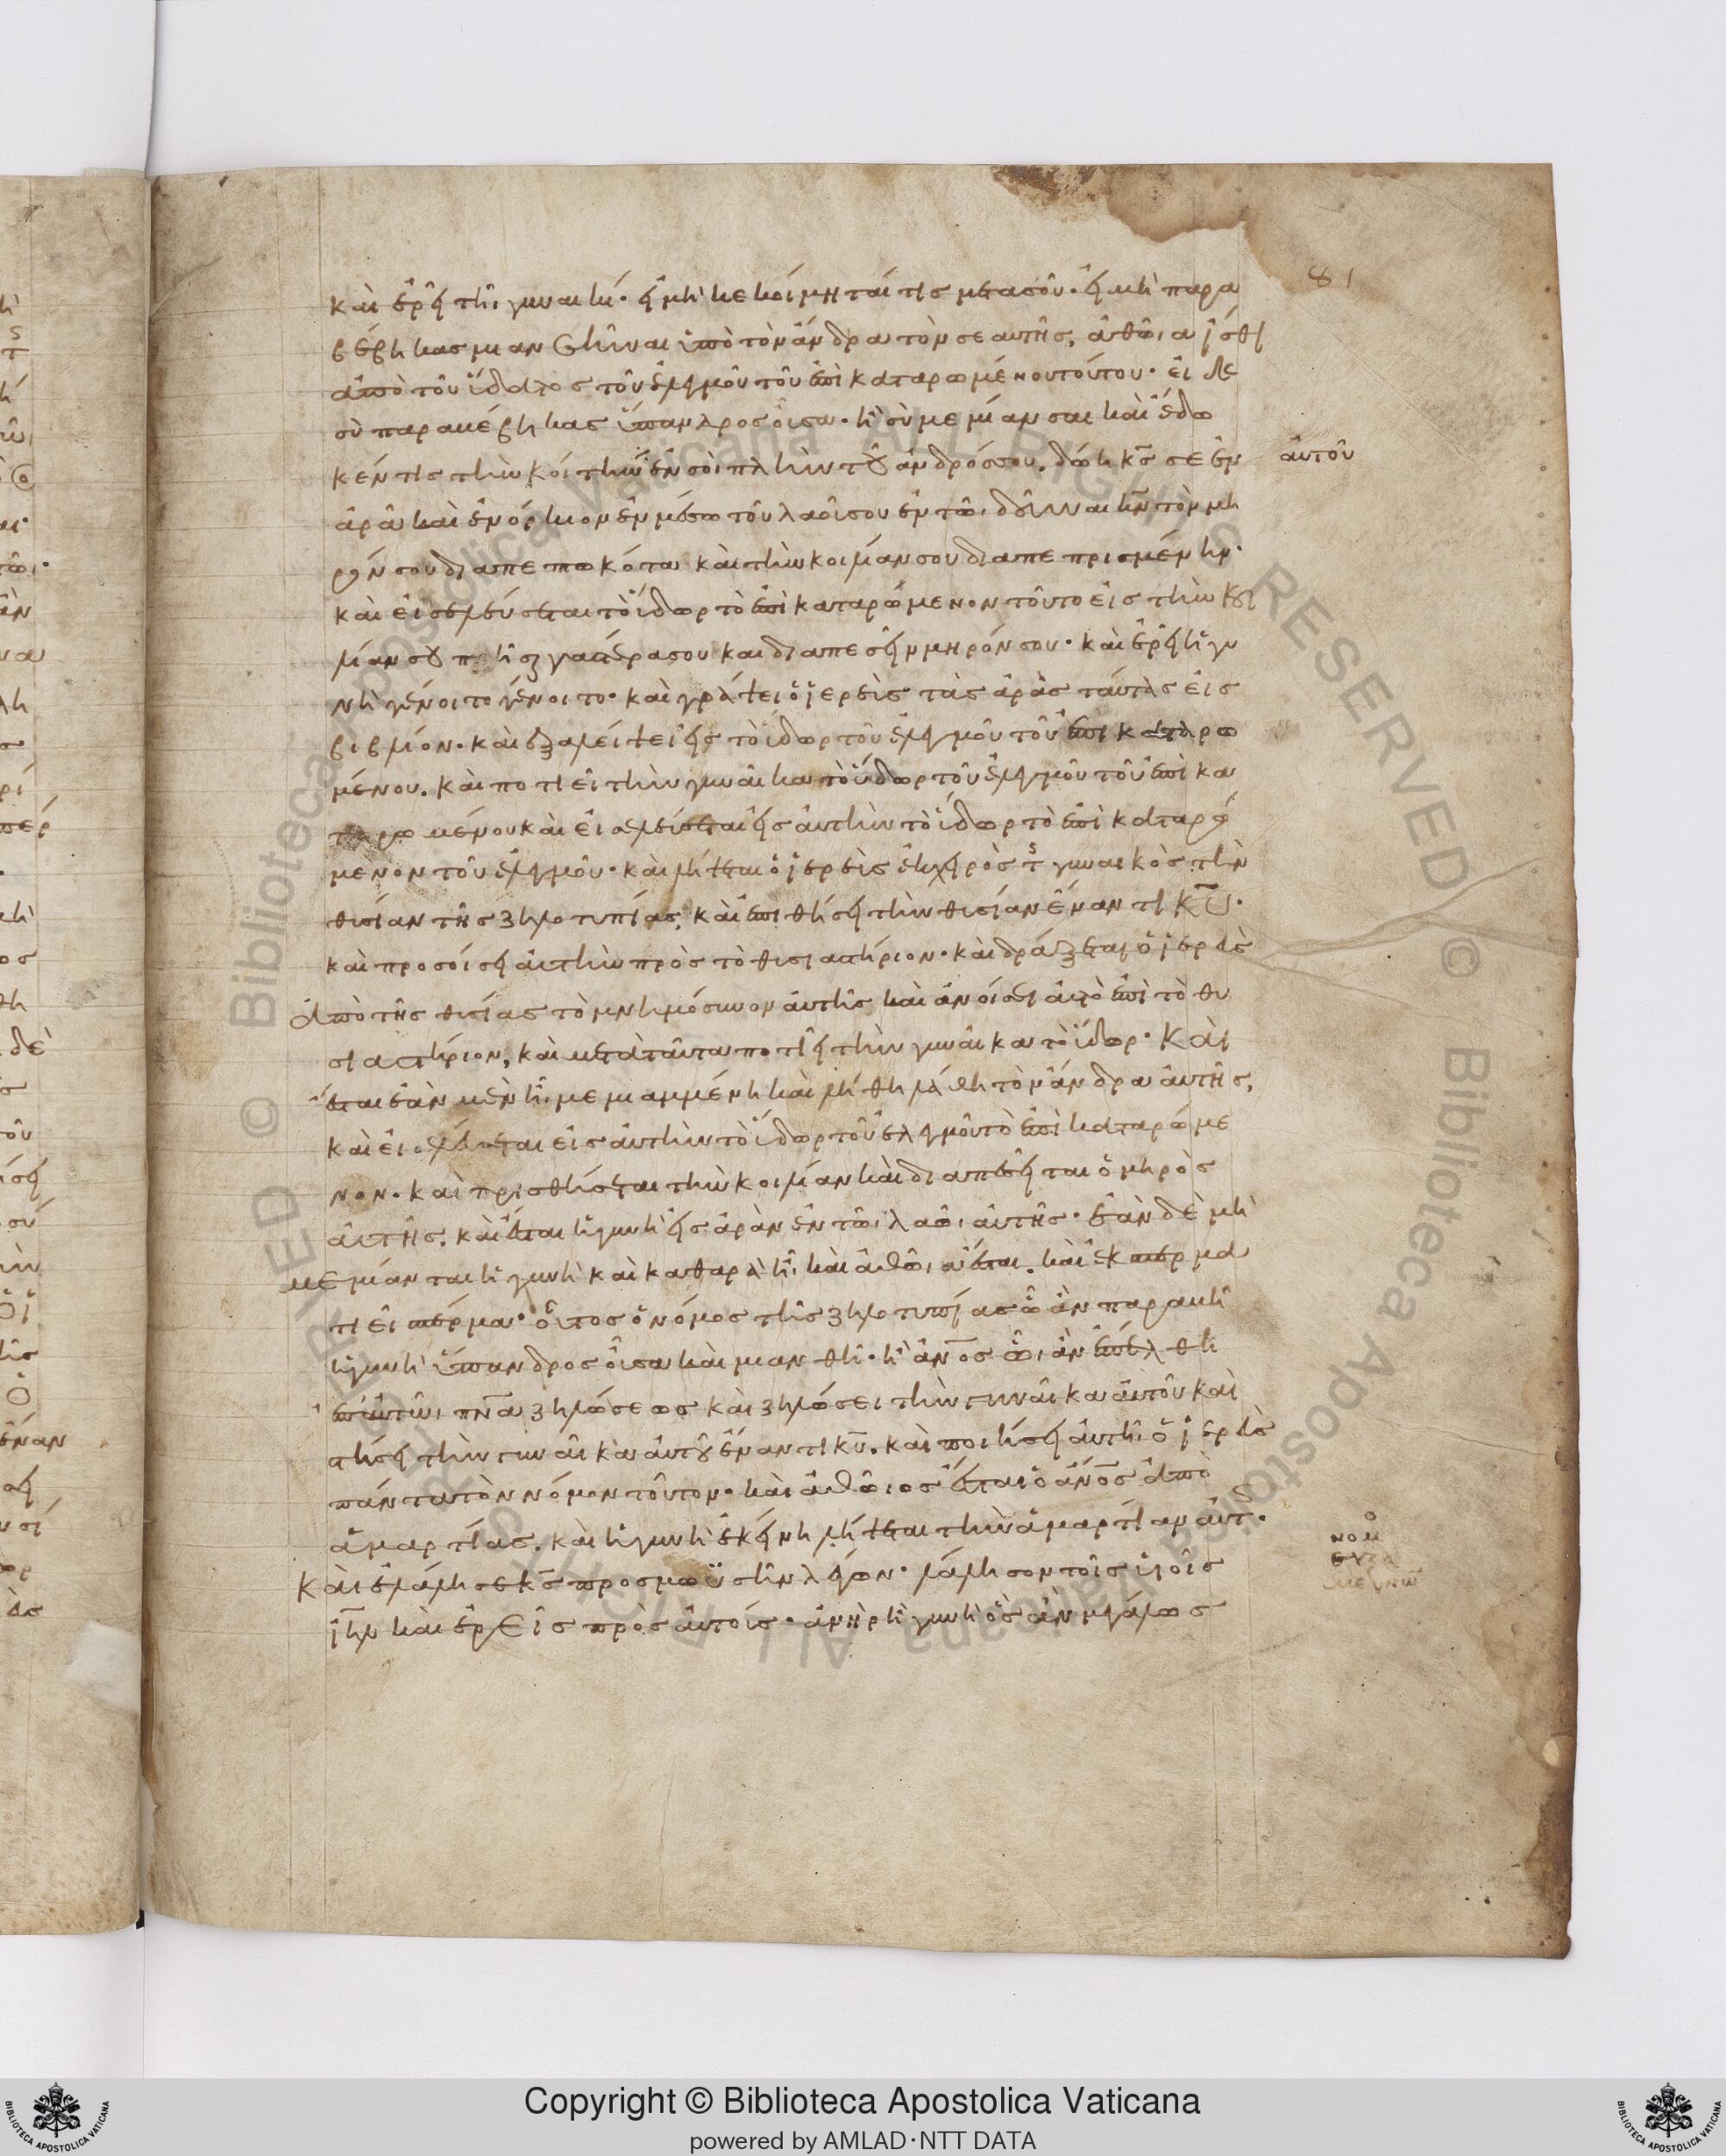 81
καὶ ἐρεῖ τῆι γυναικί· εἰ μὴ κεκοίμηταί τις μετὰ σοῦ· εἰ μὴ παρα
βέβηκας μιανθῆναι ὑπὸ τὸν ἄνδρα τὸν σεαυτῆς, ἀθῶια ἴσθι
ἀπὸ τοῦ ὕδατος τοῦ ἐλεγμοῦ τοῦ ἐπικαταρωμένου τούτου· εἰ δὲ
σὺ παραβέβηκας ὕπανδρος οὖσα· ἢ σὺ μεμίανσαι καὶ ἔδω
κέν τις τὴν κοίτην ἐν σοὶ πλὴν τοῦ ἀνδρός σου. δώη κς̅ σε ἐν
αὐτοῦ
ἀρᾶ καὶ ἐνόρκιον ἐν μέσω τοῦ λαοῦ σου ἐν τῶι δοῦναι κν̅ τὸν μη
ρόν σου διαπεπωκότα καὶ τὴν κοιλίαν σου διαπεπρισμένην·
καὶ εἰσελεύσεται τὸ ὕδωρ τὸ ἐπικαταρώμενον τοῦτο εἰς τὴν κοι
λίαν σου πρῆσαι γαστέρα σου καὶ διαπεσεῖν μηρόν σου· καὶ ἐρεῖ ἡ γυ
νὴ γένοιτο γένοιτο· καὶ γράψει ὁ ἱερεὺς τὰς ἀρὰς ταύτας εἰς
βιβλίον· καὶ ἐξαλείψει εἰς τὸ ὕδωρ τοῦ ἐλεγμοῦ τοῦ ἐπικαταρω
μένου. καὶ ποτιεῖ τὴν γυναῖκα τὸ ὕδωρ τοῦ ἐλεγμοῦ τοῦ ἐπικα
ταρωμένου καὶ εἰσελεύσεται εἰς αὐτὴν τὸ ὕδωρ τὸ ἐπικαταρώ
μενον τοῦ ἐλεγμοῦ· καὶ λήψεται ὁ ἱερεὺς ἐκ χειρὸς τῆς γυναικὸς τὴν
θυσίαν τῆς ζηλοτυπίας, καὶ ἐπιθήσει τὴν θυσίαν ἔναντι κυ̅·
καὶ προσοίσει αὐτὴν πρὸς τὸ θυσιαστήριον· καὶ δράξεται ὁ ἱερεὺς
ἀπὸ τῆς θυσίας τὸ μνημόσυνον αὐτῆς καὶ ἀνοίσει αὐτὸ ἐπὶ τὸ θυ
σιαστήριον, καὶ μετὰ ταῦτα ποτιεῖ τὴν γυναῖκα τὸ ὕδωρ· Καὶ
ἔσται ἐὰν μὲν ἦι μεμιαμμένη καὶ λήθη λάθη τὸν ἄνδρα αὐτῆς,
καὶ εἰσελεύσεται εἰς αὐτὴν τὸ ὕδωρ τοῦ ἐλεγμοῦ τὸ ἐπικαταρώμε
νον. καὶ πρισθήσεται τὴν κοιλίαν καὶ διαπεσεῖται ὁ μηρὸς
αὐτῆς. καὶ ἔσται ἡ γυνὴ εἰς ἀρὰν ἐν τῶι λαῶι αὐτῆς· ἐὰν δὲ μὴ
μεμίανται ἡ γυνὴ καὶ καθαρὰ ἦι καὶ ἀθῶια ἔσται. καὶ ἐκσπερμα
τιεῖ σπέρμα· οὗτος ὁ νόμος τῆς ζηλοτυπίας ὧ ἂν παραβῆ
ἡ γυνὴ ὕπανδρος οὖσα καὶ μιανθῆ· ἢ ἄνο̅ς ὧι ἂν ἐπέλθη
ἐπ' αὐτῶι πνα̅ ζηλώσεως καὶ ζηλώσει τὴν γυναῖκα αὐτοῦ καὶ
στήσει τὴν γυναῖκα αὐτοῦ ἔναντι κυ̅. καὶ ποιήσει αὐτῆι ὁ ἱερεὺς
πάντα τὸν νόμον τοῦτον. καὶ ἀθῶιος ἔσται ὁ ἄνο̅ς ἀπὸ
ἁμαρτίας. καὶ ἡ γυνὴ ἐκείνη λήψεται τὴν ἁμαρτίαν αὐτῆς·
Καὶ ἐλάλησε κς̅ πρὸς μωϋσῆν λέγων· λάλησον τοῖς υἱοῖς
ιη̅λ καὶ ἐρεῖς πρὸς αὐτούς· ἀνὴρ ἢ γυνὴ ὃς ἂν μεγάλως